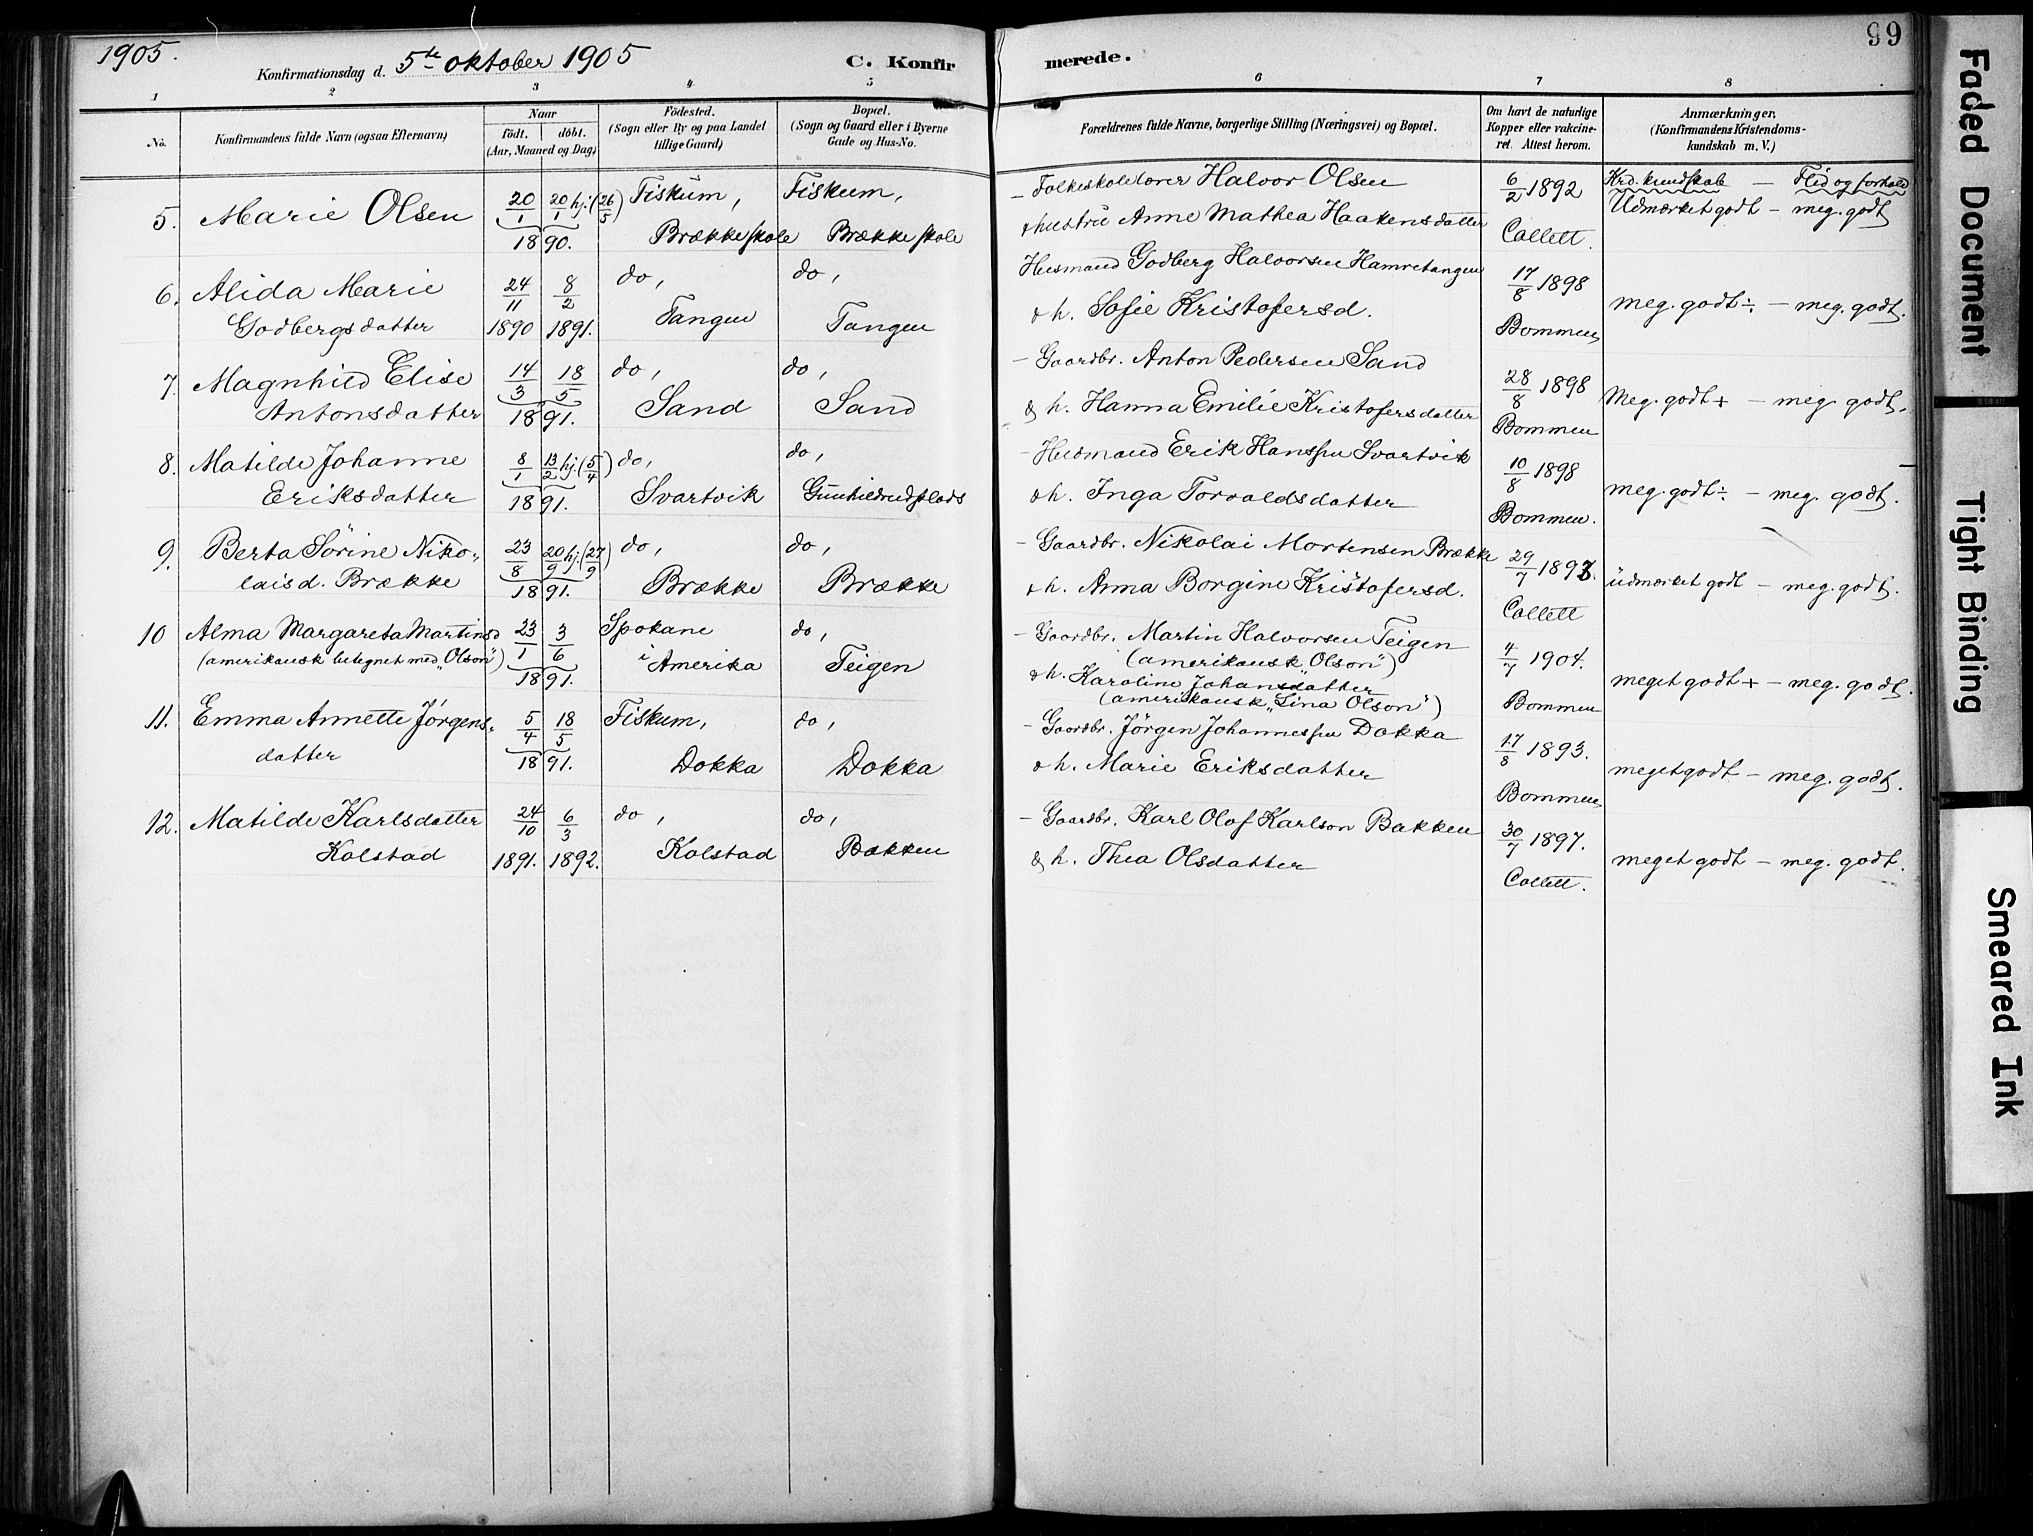 1905.
Konfirmationsdag d. 5te oktober 1905
C. Konfir
merede.
99
1 2 3 4 5 6 7 8
No.
Konfirmandens fulde Navn (ogsaa Efternavn)
Naar
födt. döbt.
(Aar, Maaned og Dag)
Födested.
(Sogn eller By og paa Landet
tillige Gaard)
Bopæl.
(Sogn og Gaard eller i Byerne
Gade og Hus-No.
Forældrenes fulde Navne, borgerlige Stilling (Næringsvei) og Bopæl.
Om havt de naturlige
Kopper eller vakcine-
ret. Attest herom.
Anmærkninger,
(Konfirmandens Kristendoms-
kundskab m. V.)
Krd. kundskab — Flid og forhold
5. Marie Olsen 20/1 20/1 hj. (26/5) 1890. Fiskum, Brække skole Fiskum, Brække skole
– Folkeskolelærer Halvor Olsen
& hustru Anne Mathea Haakensdatter
6/2 1892 Collett.
Udmærket godt – meg. godt
6. Alida Marie
Godbergsdatter
24/11 1890 8/2 1891. do, Tangen do, Tangen
Husmand Godberg Halvorsen Hamretangen
& h. Sofie Kristofersd.
17/8 1898 Bommen
meg. godt ÷ – meg. godt.
7. Magnhild Elise
Antonsdatter
14/3 18/5 1891. do, Sand do, Sand
– Gaardbr. Anton Pedersen Sand
& h. Hanna Emilie Kristofersdatter
28/8 1898 Bommen
Meg. godt + – meg. godt.
8. Matilde Johanne
Eriksdatter
8/1 13/2 hj. (5/4) 1891. do, Svartvik do, Gunhildrudplads
– Husmand Erik Hanssen Svartvik
& h. Inga Torvaldsdatter
10/8 1898 Bommen.
meg. godt ÷ – meg. godt.
9. Berta Sørine Niko-
laisd. Brække
23/8 20/9 hj. (27/9) 1891. do, Brække do, Brække
– Gaardbr. Nikolai Mortensen Brække
& h. Anna Borgine Kristofersd.
29/7 1893. Collett
udmærket godt – meg. godt.
10 Alma Margareta Martinsd
(amerikansk betegnet med „Olson")
23/1 3/6 1891. Spokane i Amerika do, Teigen
– Gaardbr. Martin Halvorsen Teigen
(amerikansk „Olson")
& h. Karoline Johansdatter
(amerikansk „Lina Olson")
4/7 1904. Bommen
meget godt + – meg. godt.
11. Emma Annette Jørgens-
datter
5/4 18/5 1891. Fiskum, Dokka do, Dokka
– Gaardbr. Jørgen Johannessen Dokka
& h. Marie Eriksdatter
17/8 1893. Bommen
meget godt – meg. godt.
12. Matilde Karlsdatter
Kolstad
24/10 1891. 6/3 1892. do, Kolstad do, Bakken
– Gaardbr. Karl Olof Karlson Bakken
& h. Thea Olsdatter
30/7 1897. Collett.
meget godt – meg. godt.
Faded Document
Tight Binding
Smeared Ink